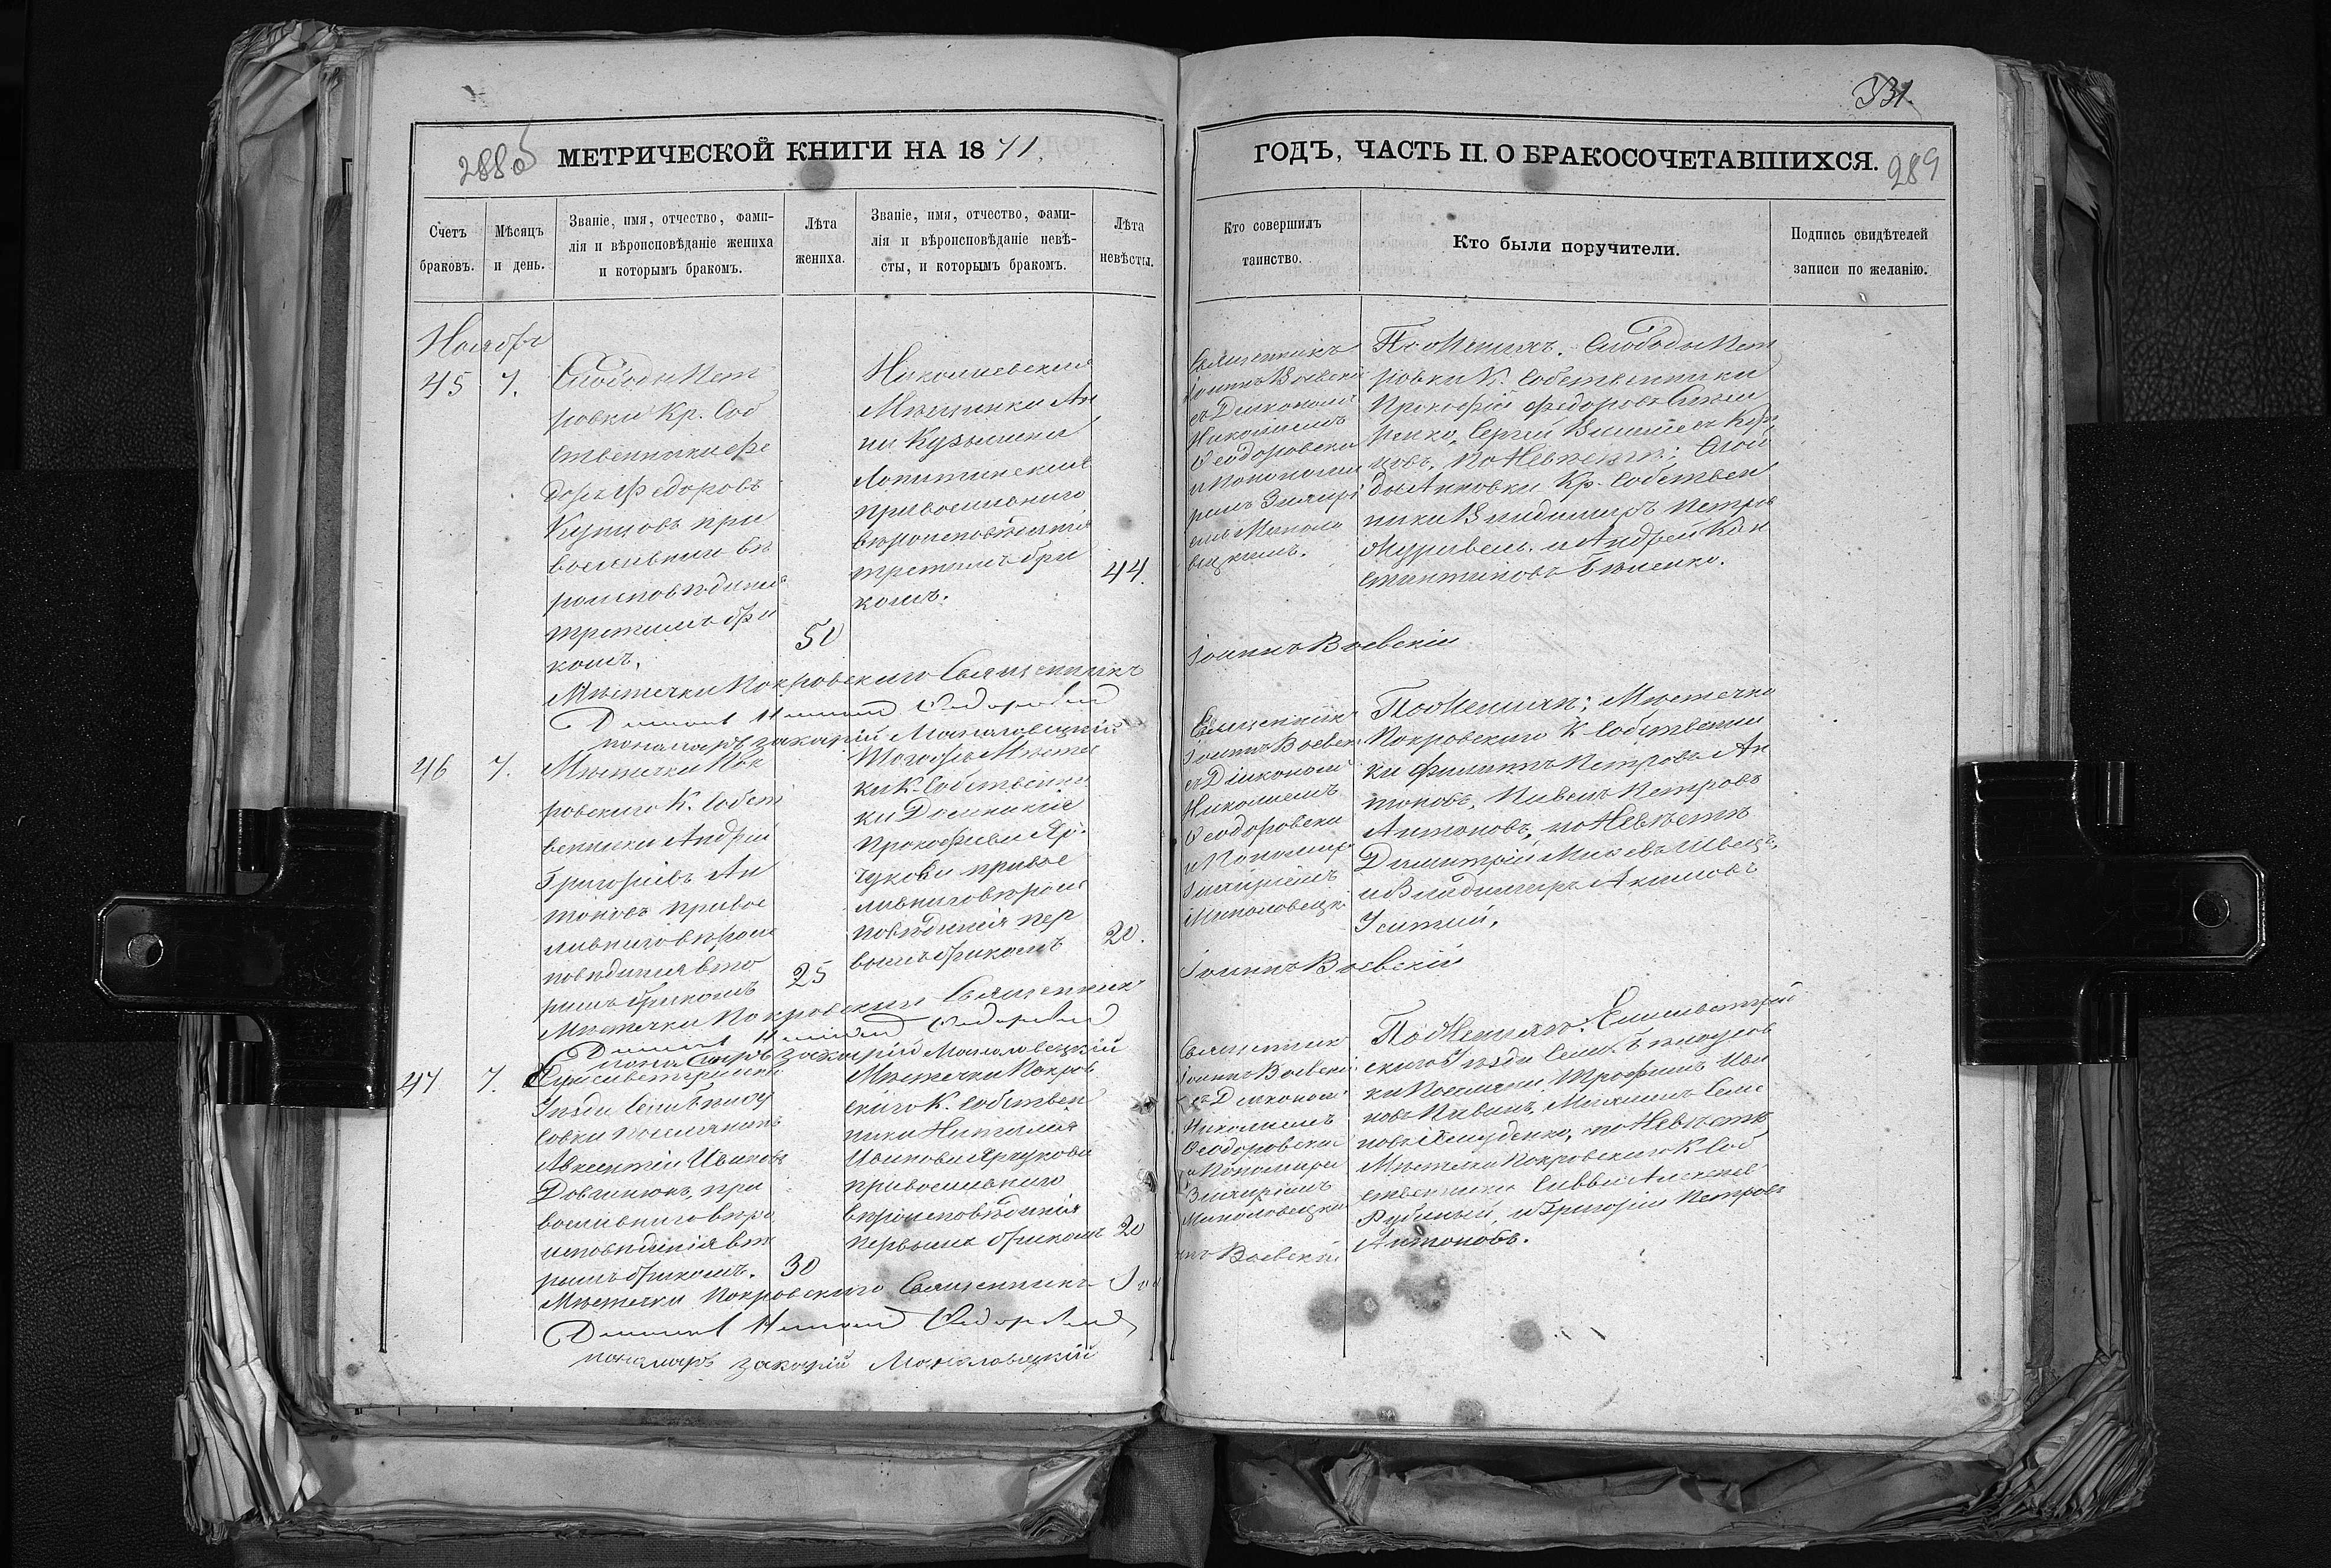 331.
288об
МЕТРИЧЕСКОЙ КНИГИ НА 1871.
ГОДЪ, ЧАСТЬ II. О БРАКОСОЧЕТАВШИХСЯ.
289
Счетъ
браковъ.
Мѣсяцъ
и день.
Званіе, имя, отчество, фами-
лія и вѣроисповѣданіе жениха
и которымъ бракомъ.
Лѣта
жениха.
Званіе, имя, отчество, фами-
лія и вѣроисповѣданіе невѣ-
сты, и которымъ бракомъ.
Лѣта
невѣсты.
Кто совершилъ
таинство.
Кто были поручители.
Подпись свидѣтелей
записи по желанію.
Ноябрь
45
7.
Слободы Пет
ровки Кр. Соб
ственникъ Фе
Федоровъ
Купцовъ пра
вославнаго вѣ
роисповѣданія
третимъ бра
комъ.
50
Николаевская
Мѣщанка Ан
на Кузьмина
православнаго
вѣроисповѣданія
третимъ бра
комъ.
44.
Священникъ
Іоаннъ Воевскій
съ Діакономъ
Николаемъ
Ѳеодоровски
и Пономаремъ
По Женихѣ: Слободы Пет
ровки К. Собственники
Прокофій Федоровъ
Сергій
по Невѣстѣ: Слобо
ды Анновки Кр. Собствен
ники Владимиръ Петровъ
Журавель и Андрей Кон
стантиновъ
Мѣстечка Покровскаго Священникъ
Іоаннъ Воевскій
Діаконъ Николай Ѳеодоровскій
пономарь Захарій Маноловецкій
46
7.
Мѣстечка Пок
ровскаго К. Собст
венникъ Андрей
Григорьевъ Ан
тоновъ правос
лавнаго вѣроис
повѣданія вто
рымъ бракомъ
25
Тогожъ Мѣстеч
ка К. Собственни
ка
Прокофьева Яр
чукова правос
лавнаго вѣроис
повѣданія пер
вымъ бракомъ
20.
Священникъ
Іоаннъ Воевск
съ Діакономъ
Николаемъ
Ѳеодоровски
и Пономар
Захаріемъ
Маноловецки
По Женихѣ: Мѣстечка
Покровскаго К Собственни
ки Филиппъ Петровъ Ан
тоновъ, Павелъ Петровъ
Антоновъ, по Невѣстѣ
Димитрій Швецъ,
и Владимиръ Акимовъ
Усатый.
Мѣстечка Покровскаго Священникъ
Іоаннъ Воевскій
Діаконъ Николай Ѳеодоровскій
пономарь Захарій Маноловецкій
47
7.
Елисаветградскаго
Уѣзда
поселянинъ
Авксентій Ивановъ
Довганюкъ, пра
вославнаго вѣро
исповѣданія вто
рымъ бракомъ.
30
Мѣстечка Покров
скаго К. Собствен
ника Наталія
Иванова Ярчукова
православнаго
вѣроисповѣданія
первымъ бракомъ
20
Священник
Іоаннъ Воевскі
съ Діакономъ
Николаемъ
Ѳеодоровски
и Пономаремъ
Захаріемъ
Маноловецки
По Женихѣ: Елисаветград
скаго Уѣзда
Поселяне Трофимъ Ива
новъ
по Невѣстѣ
Мѣстечка Покровскаго К Соб
ственники Савва Алексѣев
и Григорій Петровъ
Антоновъ.
Мѣстечка Покровскаго Священникъ Іоа
ннъ Воевскій
Діаконъ Николай Ѳеодоровскій
пономарь Захарій Маноловецкій